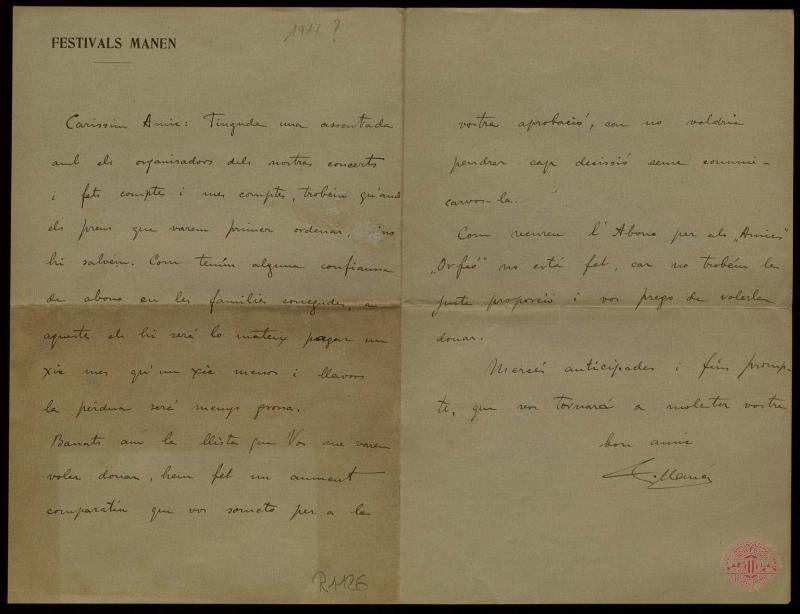 FESTIVALS MANEN
1917?
Carissim Amic: Tinguda una assentada
amb els organisadors dels nostres concerts
i fets comptes i mes comptes, trobém qu'amb
els preus que varem primer ordenar,
hi salvém. Com tením alguna confiansa
de abono en les families conegudes, a
aquestes els hi será lo mateix pagar un
xic mes qu'un xic menos i llavors
la pérdua será menys grossa.
Basats am la llista que Vos me varem
voler donar, hem fet un aument
comparatiu que vos someto per a la
R1126
vostra aprobació, car no voldria
pendrer cap decissió sense comuni-
carvos-la.
Com veureu l'Abono per als "Amics"
"Orfeó" no está fet, car no trobém la
justa proporció i vos prego de volerla
donar.
Mercés anticipades i fins promp-
te, que vos tornará a molestar vostre
bon amic
Manén